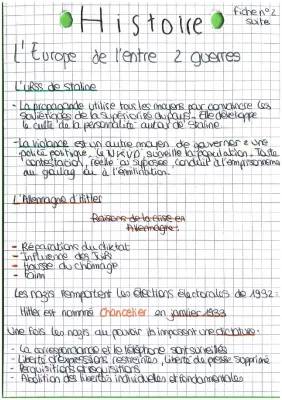 Histoire
fiche n°2
suite
L'Europe de l'entre 2 guerres
L'URSS de Staline
- La propagande utilise tous les moyens pour convaincre les
soviétiques de la supériorité du pays. Elle développe
le culte de la personnalité autour de Staline.
- La violence est un autre moyen de gouverner : une
police politique, le NKVD, surveille la population. Toute
contestation, réelle ou supposée, conduit à l'emprisonnement
au goulag ou à l'élimination.
L'Allemagne d'Hitler
Raisons de la crise en
Allemagne :
- Réparations du diktat
- Influence des Juifs
- Hausse du chômage
- Faim
Les nazis remportent les élections électorales de 1932 :
Hitler est nommé Chancelier en janvier 1933
Une fois les nazis au pouvoir ils imposent une dictature :
- La correspondance et le téléphone sont surveillés
- Liberté d'expressions restreintes, liberté de presse supprimé
- Perquisitions et réquisitions
- Abolition des libertés individuelles et fondamentales